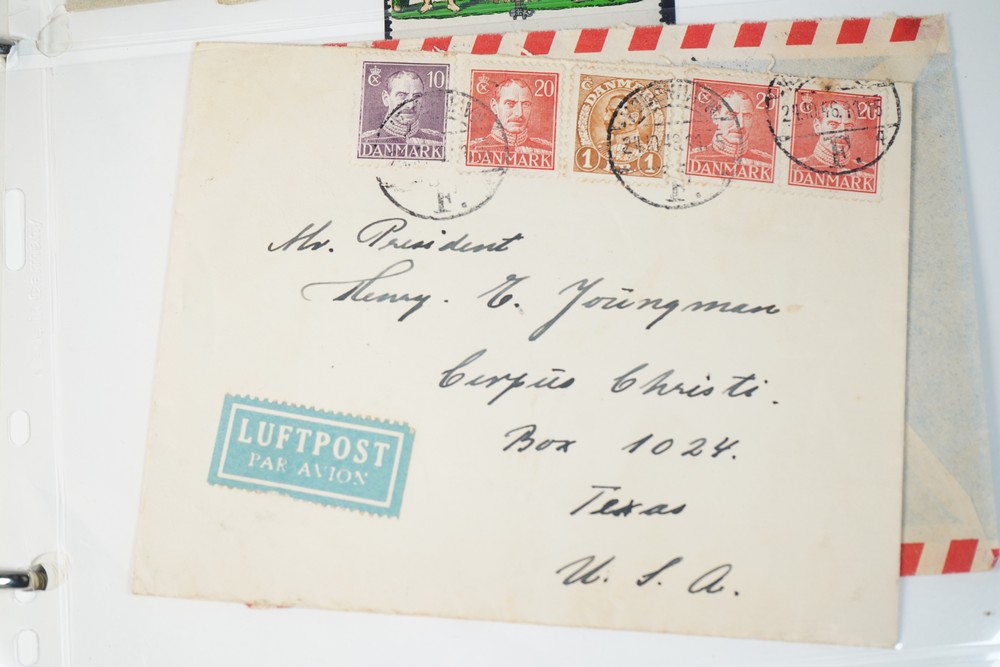 10
DANMARK
20
DANMARK
DANMARK
1 1
DANMARK
20
DANMARK
F.
F.
F.
Mr. President
Henry. E. Youngman
Cerpūs Christi.
Box 1024.
Texas
U. S. A.
LUFTPOST
PAR AVION